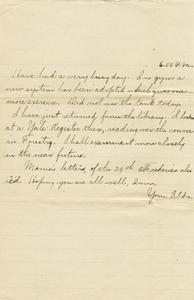 6:00 P.M.
Have had a very busy day. In gym a
new system has been adopted which gives me
more exercise. Did not use the tank today.
I have just returned from the library. I looked
at a Yale Register there, reading over the course
in Forestry. I shall examine it more closely
in the near future.
Mama's letters, of the 29th & Frederic's also
rec'd. Hoping you are all well, I am
Your Aldo.